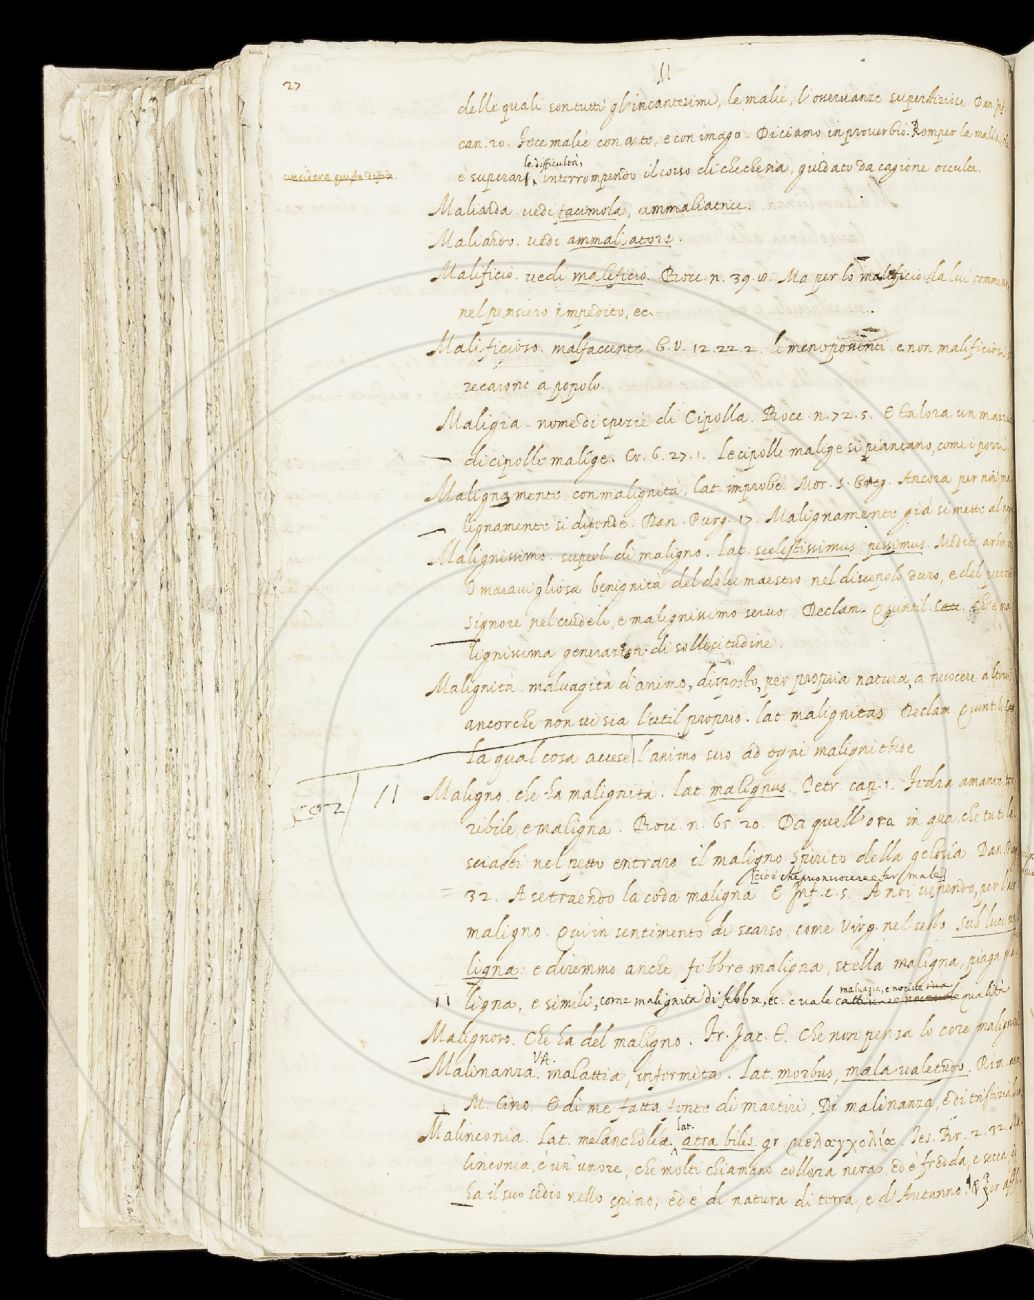 27
delle quali son tutti gl'incantesimi, le malíe, l'osseruanze superstiziose. Dan. Inf.
can. 20. Fece malíe con arte, e con imago. Diciamo in prouerbio. Romper la malía,
le difficultà,
e superar interrompendo il corso di che che sia, guidato da cagione occulta.
considera questa
Maliarda. vedi facimola, ammaliatrice.
Maliardo. vedi ammaliatore.
Malificio. vedi maleficio. Bocc. n. 39. Ma per lo malificio da lui
nel pensiero impedito, ec.
Malificioso. malfaccente G. V. 12. 22. 2. li e non malificiosi
recarono a popolo.
Maligia. nome di spezie di Cipolla. Bocc. n. 72. 5. E talora un
di cipolle malige. Cr. 6. 27. 1. Le cipolle malige si piantano, come i porri.
Malignamente. con malignità, lat. improbe. Mor. S. Greg. Ancora per noi
lignamente si difende. Dan. Purg. 17. Malignamente già si mette al
Malignissimo. superl. di maligno. lat. scelestissimus, pessimus. Medit.
O marauigliosa benignità del dolce maestro nel discepolo duro, e del
signore nel crudele, e malignissimo seruo. Declam. Quintil.
lignissima generazion di sollecitudine.
Malignità. maluagità d'animo, disposto, per propria natura, a nuocere altrui
ancorchè non vi sia l'util proprio. lat. malignitas Declam. Quintil.
la qual cosa accese l'animo suo ad ogni malignitade
Maligno. che ha malignità. lat. malignus. Petr. cap. 1.
ribile, e maligna. Bocc. n. 65. 20. Da quell'ora in qua, che tu ti
sciasti nel petto entrare il maligno spirito della gelosía. Dan.
cioè che può nuocere e far male
32. A se traendo la coda maligna. E Inf. c. 5. A noi venendo, per l'aer
maligno. Qui in sentimento di scarso, come Virg. nel sesto. Sub luce
ligna: e diremmo anche, febbre maligna, stella maligna, piaga
maluagia, e nociua sua
ligna, e simili, come malignità di febbre, ec. e vale qualità
Malignoso. Che ha del maligno. Fr. Jac. T. Che non pensa lo core
VA.
Malinanza. malattia, infermità. lat. morbus, mala ualetudo. Rim. ant.
M. Cino. E di me fatta fonte di martiri, Di malinanza, e di tristizia
lat.
Malinconia. lat. melancholia. atra bilis. gr. μελαγχολία. Tes. Br. 2. 32.
linconia, è un umore, che molti chiamano collera nera, ed è fredda, e secca,
ha il suo sedio nello spino, ed è di natura di terra, e d'Autunno. Per